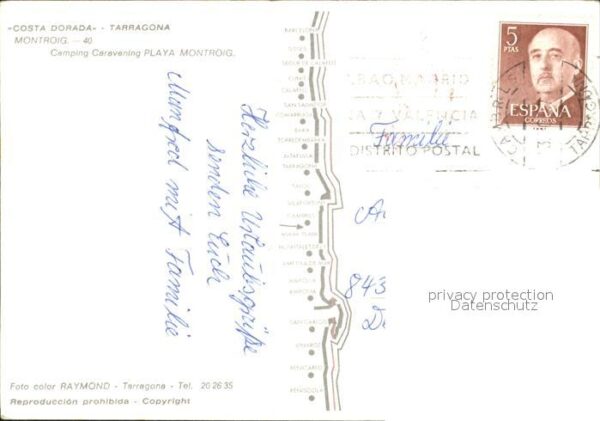 «COSTA DORADA» - TARRAGONA
MONTROIG. — 40
Camping Caravening PLAYA MONTROIG.
Herzliche Urlaubsgrüße
senden Euch
Manfred mit Familie
BARCELONA
SITGES
CUNIT
CALAFELL
SAN SALVADOR
TORREDEMBARRA
ALTAFULLA
TARRAGONA
SALOU
CAMBRILS
MIAMI PLAYA
HOSPITALET
AMETLLA DE MAR
AMPOLLA
SAN CARLOS
VINAROZ
BENICARLO
PEÑISCOLA
5
PTAS
ESPAÑA
CORREOS
BAO, MADRID
A Y VALENCIA
DISTRITO POSTAL
Familie
843
privacy protection
Datenschutz
Foto color RAYMOND - Tarragona - Tel. 20 26 35
Reproducción prohibida - Copyright